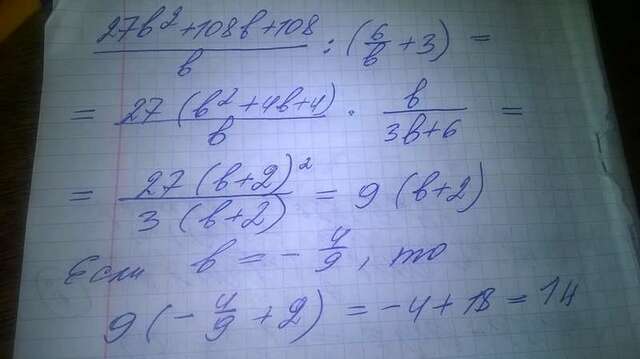 (27b²+108b+108)/b : (6/b + 3) =
= 27(b²+4b+4)/b · b/(3b+6) =
= 27(b+2)²/3(b+2) = 9(b+2)
Если b = -4/9, то
9(-4/9 + 2) = -4+18 = 14